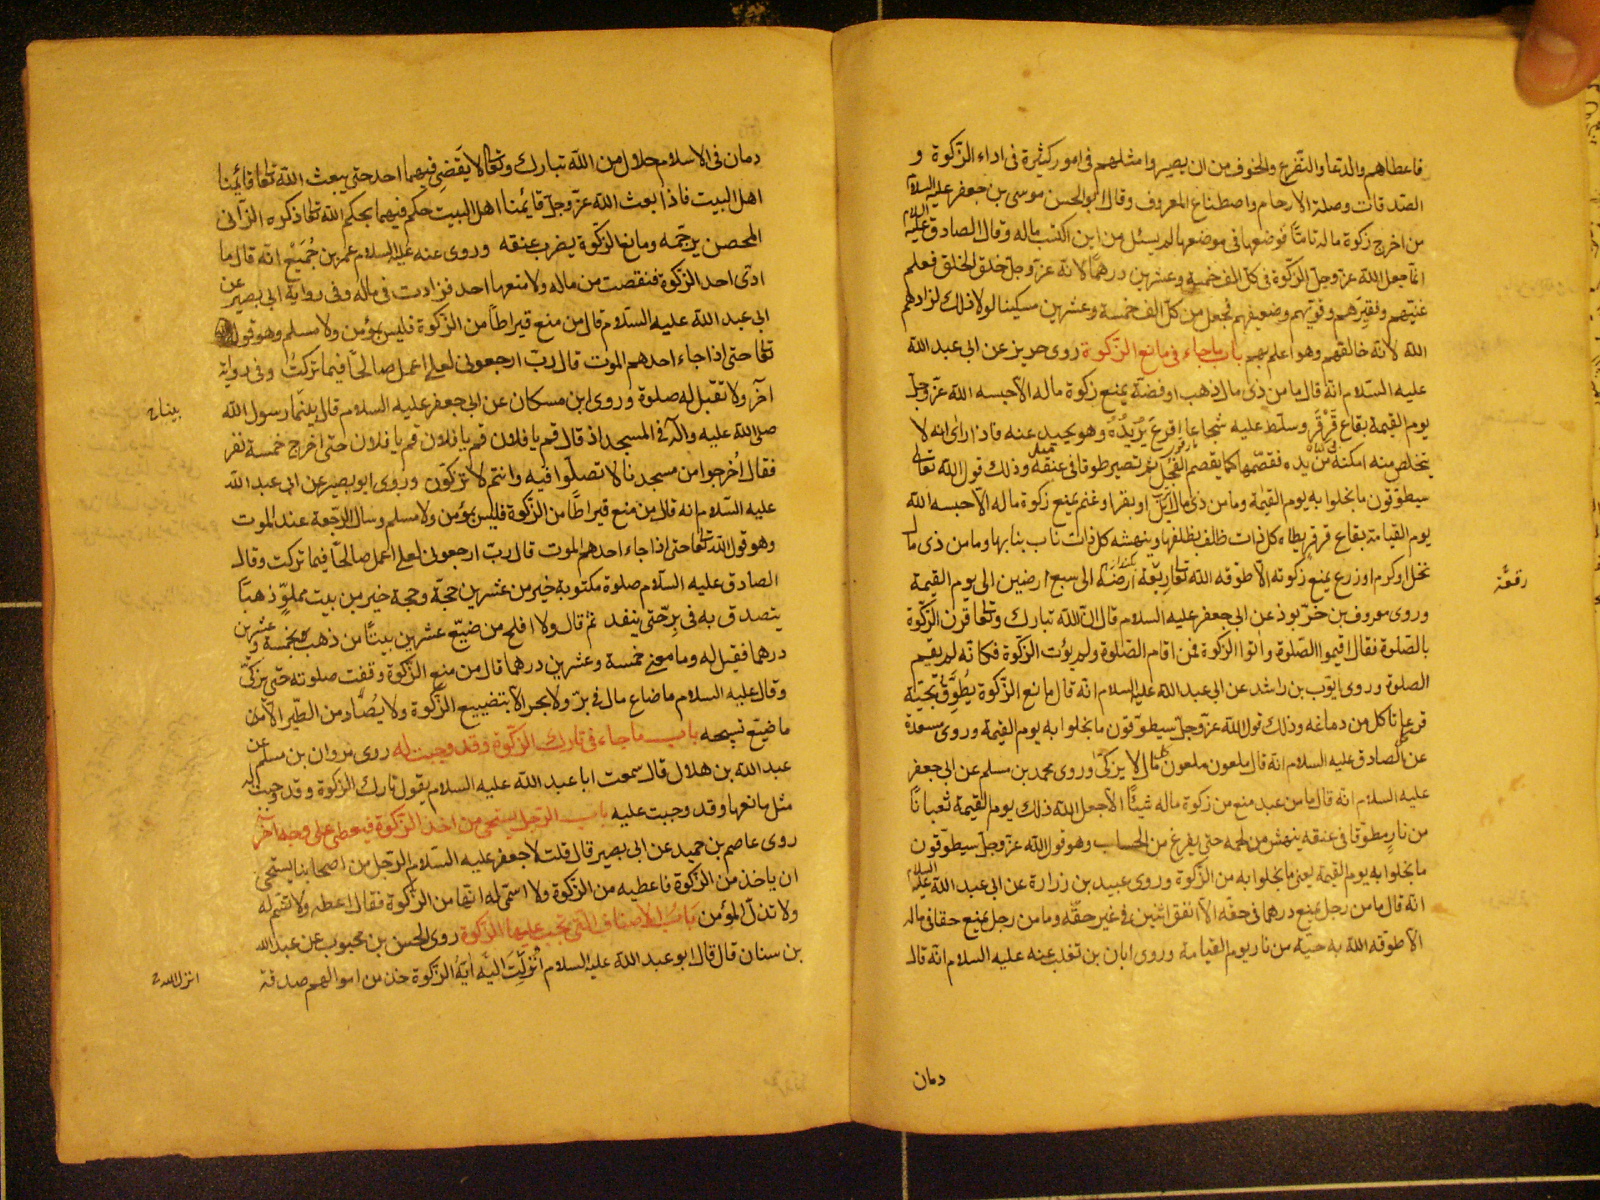 فاعطاهم والدعا والتضرع والخوف من ان يصيروا مثلهم فى امور كثيرة فى اداء الزكوة و
الصدقات وصلة الارحام واصطناع المعروف وقال ابو الحسن موسى بن جعفر عليه السلام
من اخرج زكوة ماله تامّا فوضعها فى موضعها لم يسئل من اين اكتسب ماله وقال الصادق عليه السلام
انما جعل الله عز وجل الزكوة فى كل الف خمسة وعشرين درهمًا لانه عز وجل خلق الخلق فعلم
غنيهم وفقيرهم وقويهم وضعيفهم فجعل من كل الف خمسة وعشرين مسكينا لولا ذلك لزادهم
الله لانه خالقهم وهو اعلم بهم باب ما جاء فى مانع الزكوة روى حريز عن ابى عبد الله
عليه السلام انه قال ما من ذى مال ذهب او فضة يمنع زكوة ماله الا حبسه الله عز وجل
يوم القيمة بقاع قرقر وسلط عليه شجاعا اقرع يريده وهو يحيد عنه فاذا راى انه لا
يتخلص منه امكنه من يده فقضمها كما يقضم الفجل ثم تصير طوقا فى عنقه وذلك قول الله تعالى
سيطوقون ما بخلوا به يوم القيمة وما من ذى مال ابل او بقر او غنم يمنع زكوة ماله الا حبسه الله
يوم القيامة بقاع قرقر يطاه كل ذات ظلف بظلفها وينهشه كل ذات ناب بنابها وما من ذى مال
نخل او كرم او زرع يمنع زكوته الا طوقه الله تعا ريعة ارضه الى سبع ارضين الى يوم القيمة
رقعة
وروى معروف بن خربوذ عن ابى جعفر عليه السلام قال ان الله تبارك وتعا قرن الزكوة
بالصلوة فقال اقيموا الصلوة واتوا الزكوة فمن اقام الصلوة ولم يؤت الزكوة فكانه لم يقيم
الصلوة وروى ايوب بن راشد عن ابى عبد الله عليه السلام انه قال مانع الزكوة يطوق بحية
قرعا تاكل من دماغه وذلك قول الله عز وجل سيطوقون ما بخلوا به يوم القيمة وروى مسعدة
عن الصادق عليه السلام انه قال ملعون ملعون مال لا يزكى وروى محمد بن مسلم عن ابى جعفر
عليه السلام انه قال ما من عبد منع من زكوة ماله شيئًا الا جعل الله ذلك يوم القيمة ثعبانًا
من نار مطوقا فى عنقه ينهش من لحمه حتى يفرغ من الحساب وهو قول الله عز وجل سيطوقون
ما بخلوا به يوم القيمة يعنى ما بخلوا به من الزكوة وروى عبيد بن زرارة عن ابى عبد الله عليه السلام
انه قال ما من رجل يمنع درهما فى حقه الا انفق اثنين فى غير حقه وما من رجل يمنع حقا فى ماله
الا طوقه الله به حية من نار يوم القيامة وروى ابان بن تغلب عنه عليه السلام انه قال
دمان
دمان فى الاسلام حلال من الله تبارك وتعالى لا يقضى فيهما احد حتى يبعث الله تعا قائمنا
اهل البيت فاذا بعث الله عز وجل قائمنا اهل البيت حكم فيهما بحكم الله تعا ذكره الزانى
المحصن يرجمه ومانع الزكوة يضرب عنقه وروى عنه عليه السلام عمر بن جميع انه قال ما
ادى احد الزكوة فنقصت من ماله ولا منعها احد فزادت فى ماله وفى رواية ابى بصير عن
ابى عبد الله عليه السلام قال من منع قيراطًا من الزكوة فليس بمؤمن ولا مسلم وهو قول الله
تعا حتى اذا جاء احدهم الموت قال رب ارجعونى لعلى اعمل صالحًا فيما تركت وفى رواية
اخر ولا تقبل له صلوة وروى ابن مسكان عن ابى جعفر عليه السلام قال بينما رسول الله
بينا
صلى الله عليه واله فى المسجد اذ قال قم يا فلان قم يا فلان قم يا فلان حتى اخرج خمسة نفر
فقال اخرجوا من مسجدنا لا تصلوا فيه وانتم لا تزكون وروى ابو بصير عن ابى عبد الله
عليه السلام انه قال من منع قيراطًا من الزكوة فليس بمؤمن ولا مسلم وسال الرجعة عند الموت
وهو قول الله تعا حتى اذا جاء احدهم الموت قال رب ارجعونى لعلى اعمل صالحًا فيما تركت وقال
الصادق عليه السلام صلوة مكتوبة خير من عشرين حجة وحجة خير من بيت مملو ذهبًا
يتصدق به فى بر حتى ينفد ثم قال ولا افلح من ضيع عشرين بيتًا من ذهب بخمسة وعشرين
درهما فقيل له وما معنى خمسة وعشرين درهما قال من منع الزكوة وقفت صلوته حتى يزكى
وقال عليه السلام ما ضاع مال فى بر ولا بحر الا بتضييع الزكوة ولا يصاد من الطير الا من
ما ضيع تسبيحه باب ما جاء فى تارك الزكوة وقد وجبت له روى مروان بن مسلم عن
عبد الله بن هلال قال سمعت ابا عبد الله عليه السلام يقول تارك الزكوة وقد وجبت له
مثل مانعها وقد وجبت عليه باب الرجل يستحى من اخذ الزكوة فيعطى على وجه اخر
روى عاصم بن حميد عن ابى بصير قال قلت لابى جعفر عليه السلام الرجل من اصحابنا يستحى
ان ياخذ من الزكوة فاعطيه من الزكوة ولا اسمى له انها من الزكوة فقال اعطه ولا تسم له
ولا تذل المؤمن باب الاصناف التى تجب عليها الزكوة روى الحسن بن محبوب عن عبد الله
بن سنان قال قال ابو عبد الله عليه السلام انزلت اليه اية الزكوة خذ من اموالهم صدقة
انزل الله